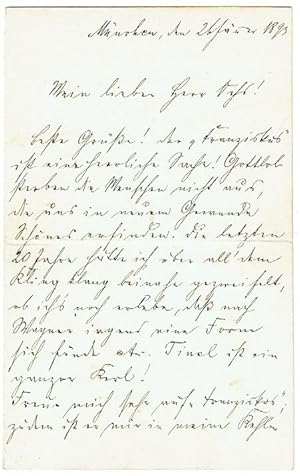 München, den 26 Jänner 1893
Mein lieber Herr Ochs!
Beste Grüße! der „Franziskus
ist eine herrliche Sache! Gottlob
sterben die Menschen nicht aus,
die uns in neuem Gewande
Schönes erfinden. Die letzten
20 Jahre hätte ich über all' dem
Kling klang beinahe gezweifelt,
ob ich's noch erlebe, daß nach
Wagner irgend eine Form
sich fände etc. Tinel ist ein
ganzer Kerl!
Freue mich sehr auf „Franziskus",
zudem ist er mir in meine Kehle